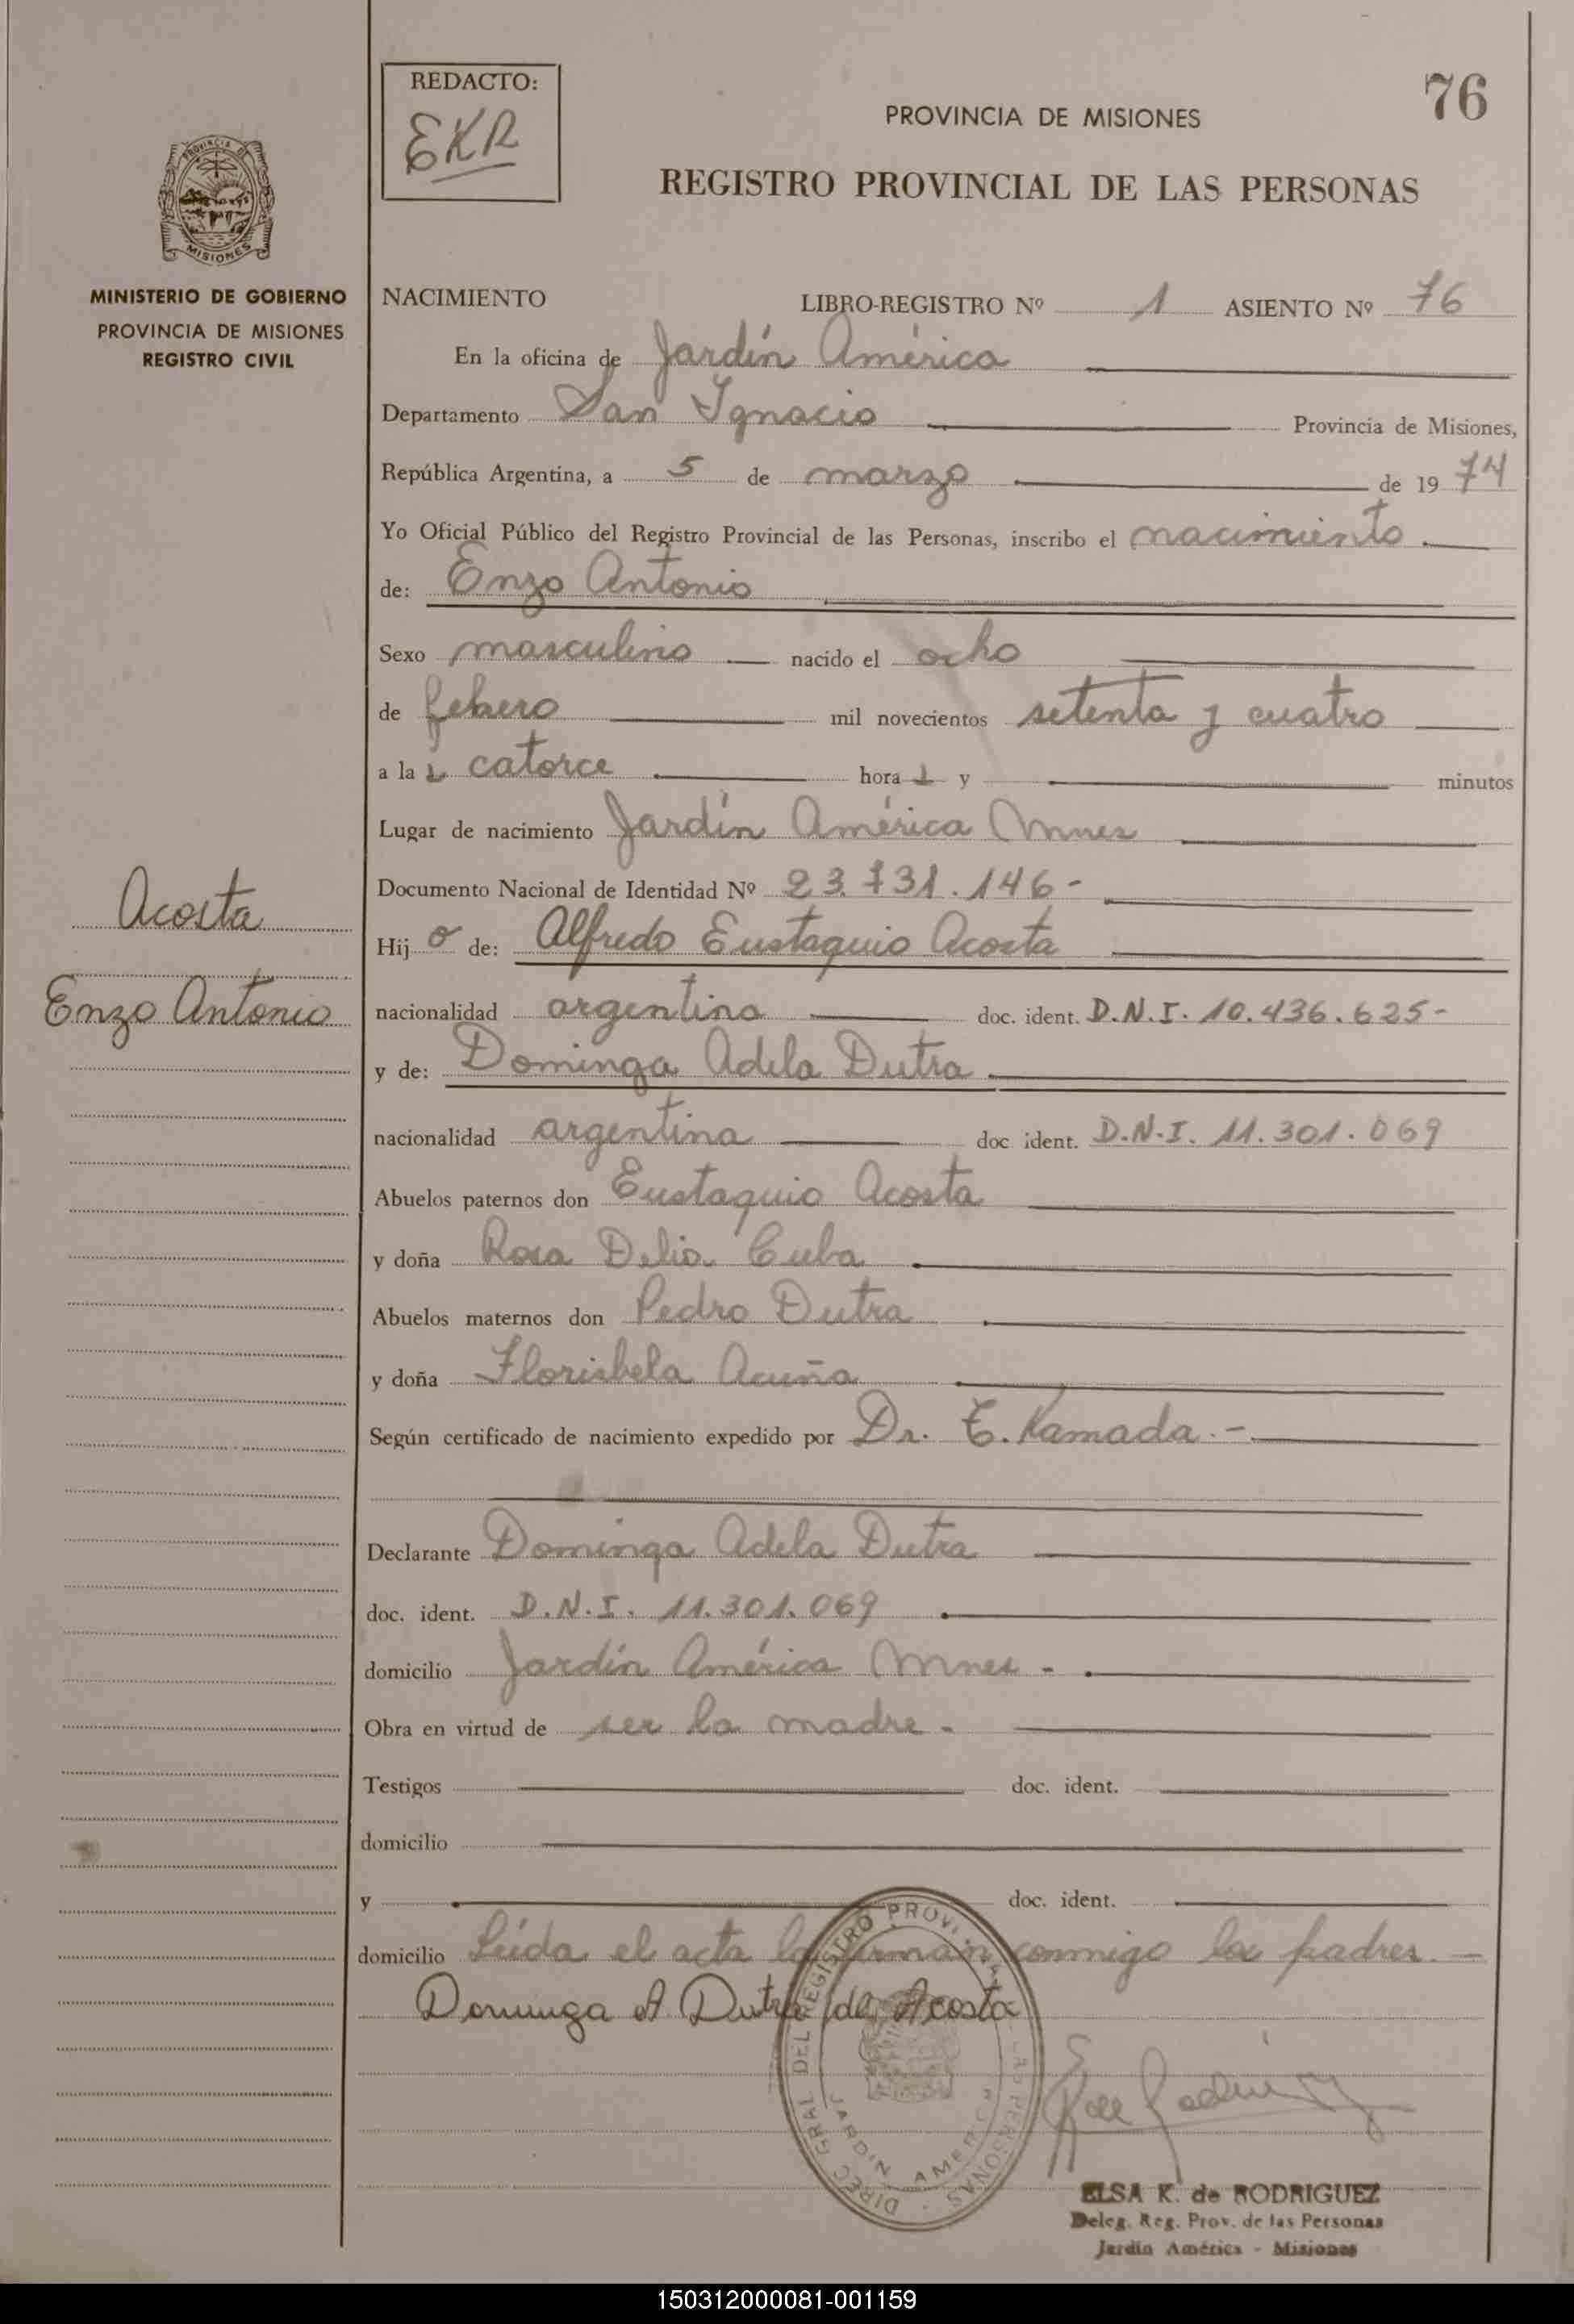 REDACTO:
EKR
76
PROVINCIA DE MISIONES
REGISTRO PROVINCIAL DE LAS PERSONAS
PROVINCIA DE
MISIONES
MINISTERIO DE GOBIERNO
PROVINCIA DE MISIONES
REGISTRO CIVIL
NACIMIENTO LIBRO-REGISTRO Nº 1 ASIENTO Nº 76
En la oficina de Jardín América
Departamento San Ignacio Provincia de Misiones,
República Argentina, a 5 de marzo de 19 74
Yo Oficial Público del Registro Provincial de las Personas, inscribo el nacimiento
de: Enzo Antonio
Sexo masculino nacido el ocho
de febrero mil novecientos setenta y cuatro
a la s catorce hora s y minutos
Lugar de nacimiento Jardín América Mnes
Documento Nacional de Identidad Nº 23.731.146-
Acosta
Hij o de: Alfredo Eustaquio Acosta
Enzo Antonio
nacionalidad argentina doc. ident. D.N.I. 10.436.625-
y de: Dominga Adela Dutra
nacionalidad argentina doc ident. D.N.I. 11.301.069
Abuelos paternos don Eustaquio Acosta
y doña Rosa Delia Cuba
Abuelos maternos don Pedro Dutra
y doña Florisbela Acuña
Según certificado de nacimiento expedido por Dr. E. Kamada.-
Declarante Dominga Adela Dutra
doc. ident. D.N.I. 11.301.069
domicilio Jardín América Mnes-
Obra en virtud de ser la madre-
Testigos doc. ident.
domicilio
y doc. ident.
domicilio Leída el acta la firman conmigo los padres.-
Dominga A Dutra de Acosta
DIREC GRAL DEL REGISTRO PROV. LAS PERSONAS
JARDIN AMERICA
ELSA K. de RODRIGUEZ
Deleg. Reg. Prov. de las Personas
Jardín América - Misiones
150312000081-001159